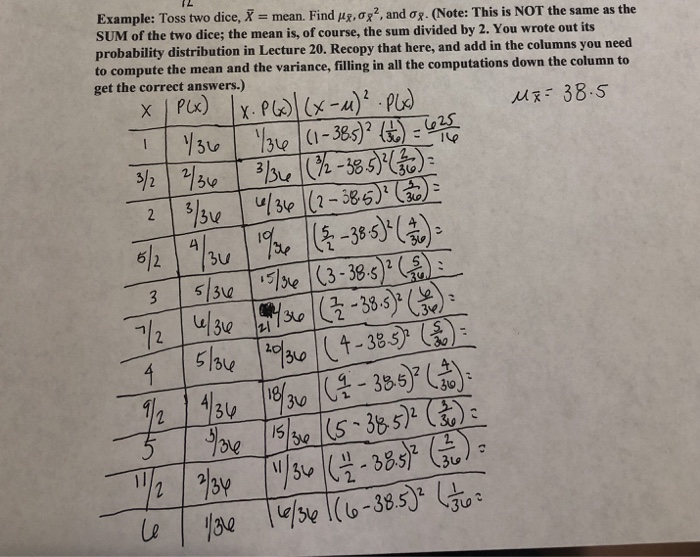 12
Example: Toss two dice, X̄ = mean. Find μx̄, σx̄², and σx̄. (Note: This is NOT the same as the
SUM of the two dice; the mean is, of course, the sum divided by 2. You wrote out its
probability distribution in Lecture 20. Recopy that here, and add in the columns you need
to compute the mean and the variance, filling in all the computations down the column to
get the correct answers.)
μx̄ = 38.5
X | P(x) | X · P(x) | (x-μ)² · P(x)
1 | 1/36 | 1/36 | (1-38.5)² (1/36) = 625/16
3/2 | 2/36 | 3/36 | (3/2-38.5)² (2/36) =
2 | 3/36 | 6/36 | (2-38.5)² (3/36) =
5/2 | 4/36 | 10/36 | (5/2-38.5)² (4/36) =
3 | 5/36 | 15/36 | (3-38.5)² (5/36) =
7/2 | 6/36 | 21/36 | (7/2-38.5)² (6/36) =
4 | 5/36 | 20/36 | (4-38.5)² (5/36) =
9/2 | 4/36 | 18/36 | (9/2-38.5)² (4/36) =
5 | 3/36 | 15/36 | (5-38.5)² (3/36) =
11/2 | 2/36 | 11/36 | (11/2-38.5)² (2/36) =
6 | 1/36 | 6/36 | (6-38.5)² (1/36 =